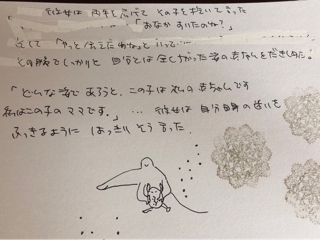 彼女は 両手を広げて その子を抱いて言った
「おなか すいたのか？」
そして「やっと会えたわね」といって...
その腕でしっかりと 自分とは全くちがった姿の赤ちゃんをだきしめた。
「どんな姿であろうと、この子は私の赤ちゃんです
私はこの子のママです。」… 彼女は自分自身の迷いを
ふっきるように はっきり そう言った.